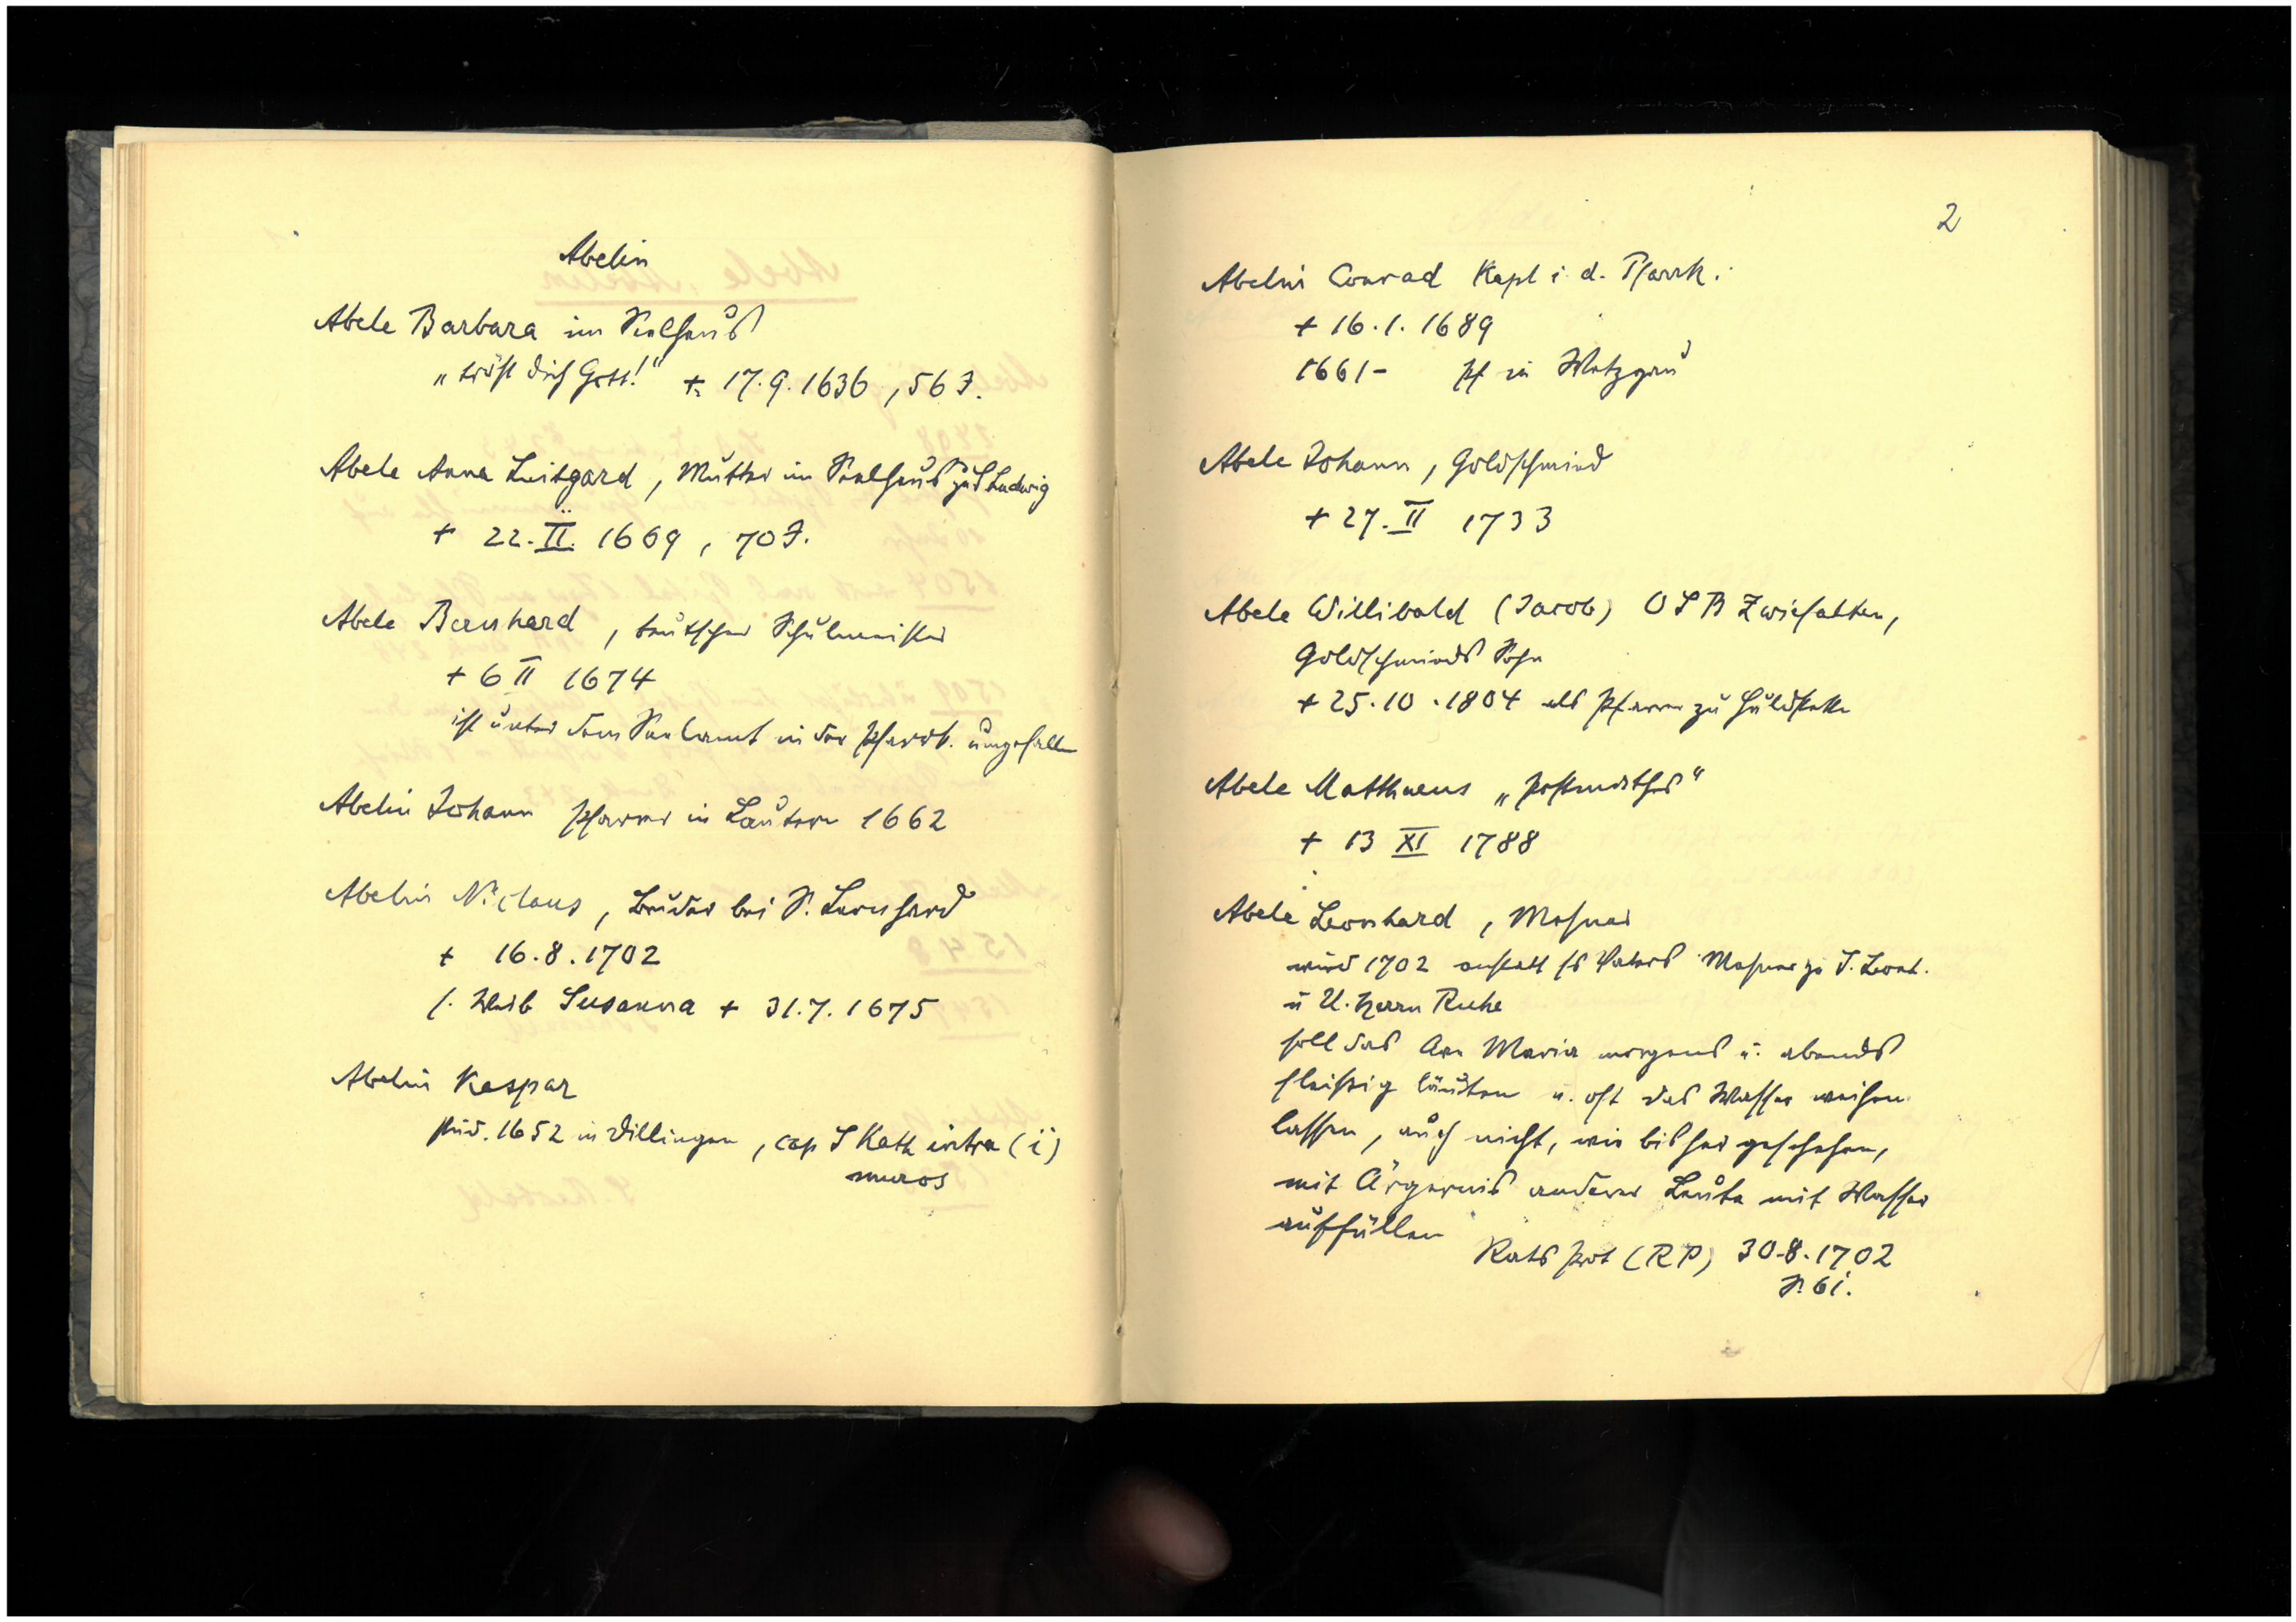 Abelin
Abele Barbara im Seelhaus
„tröst dich Gott!“ + 17.9.1636, 56 J.
Abele Anna Luitgard, Mutter im Seelhaus zu S Ludwig
+ 22. II. 1669, 70 J.
Abele Bernhard, teutscher Schulmeister
+ 6 II 1674
ist unter dem Seelamt in der Pfarrk. umgefallen
Abelin Johann Pfarrer in Lautern 1662
Abelin Niclaus, Bruder bei S. Leonhard
+ 16.8.1702
s. Weib Susanna + 31.7.1675
Abelin Kaspar
stud. 1652 in Dillingen, cap S Kath intra (i)
muros
2
Abelin Conrad Kapl i. d. Pfarrk.
+ 16.1.1689
1661- Pf in Wetzgau
Abele Johann, Goldschmied
+ 27. II 1733
Abele Willibald (Jacob) OSB Zwiefalten,
Goldschmieds Sohn
+ 25.10.1804 als Pfarrer zu
Abele Matthaeus
+ 13 XI 1788
Abele Leonhard, Mesner
wird 1702 anstatt ss Vaters Mesner zu S. Leonh.
u U. Herrn Ruhe
soll das Ave Maria morgens u. abends
fleißig läuten u. oft das Wasser weihen
lassen, auch nicht, wie bisher geschehen,
mit Ärgernis anderer Leute mit Wasser
auffüllen
Rats Prot (RP) 30.8.1702
S. 61.